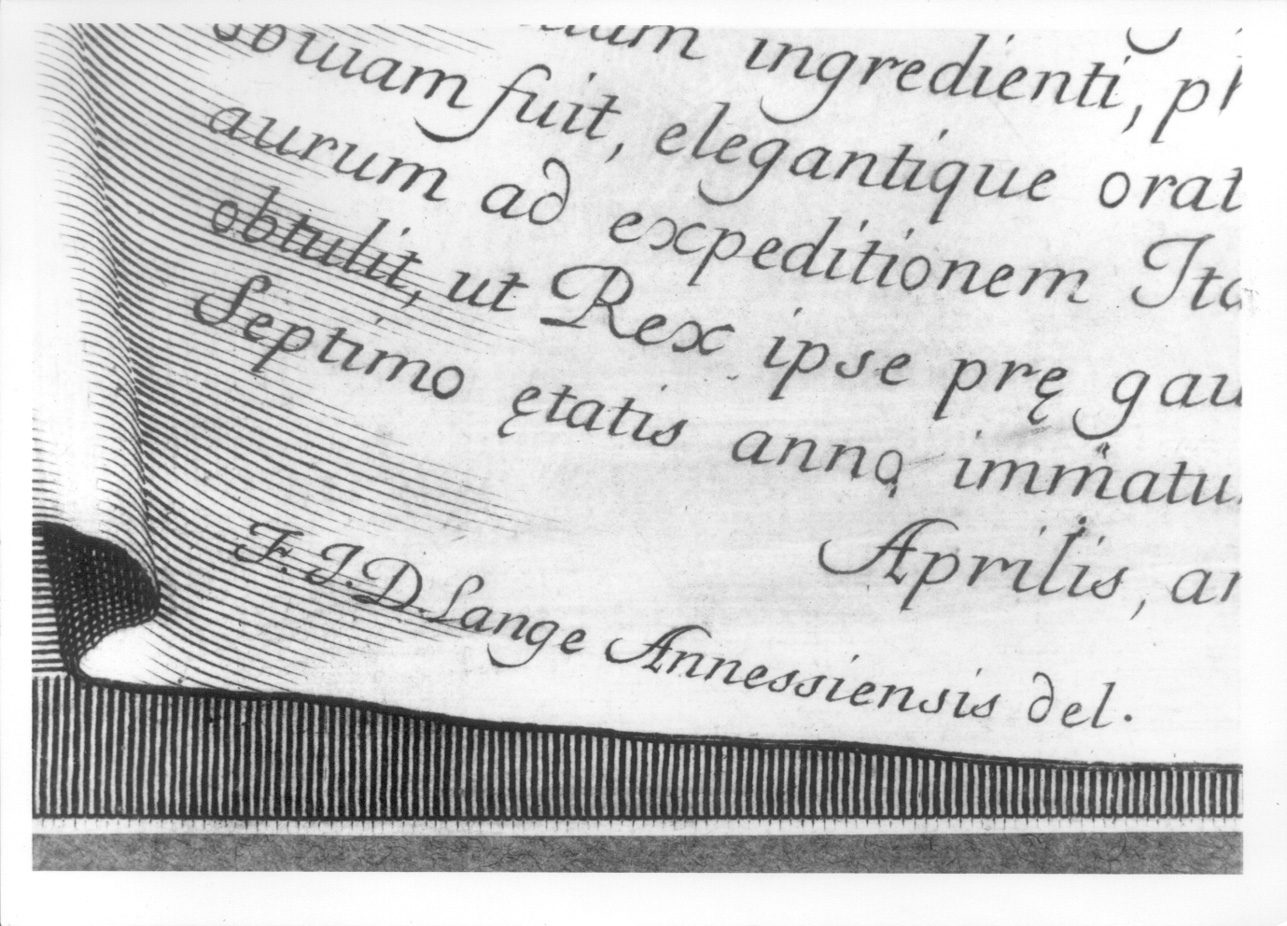 ingredienti,
obuiam fuit, elegantique
aurum ad expeditionem
obtulit, ut Rex ipse prę
Septimo ętatis anno
Aprilis,
F. J. D Lange Annessiensis del.